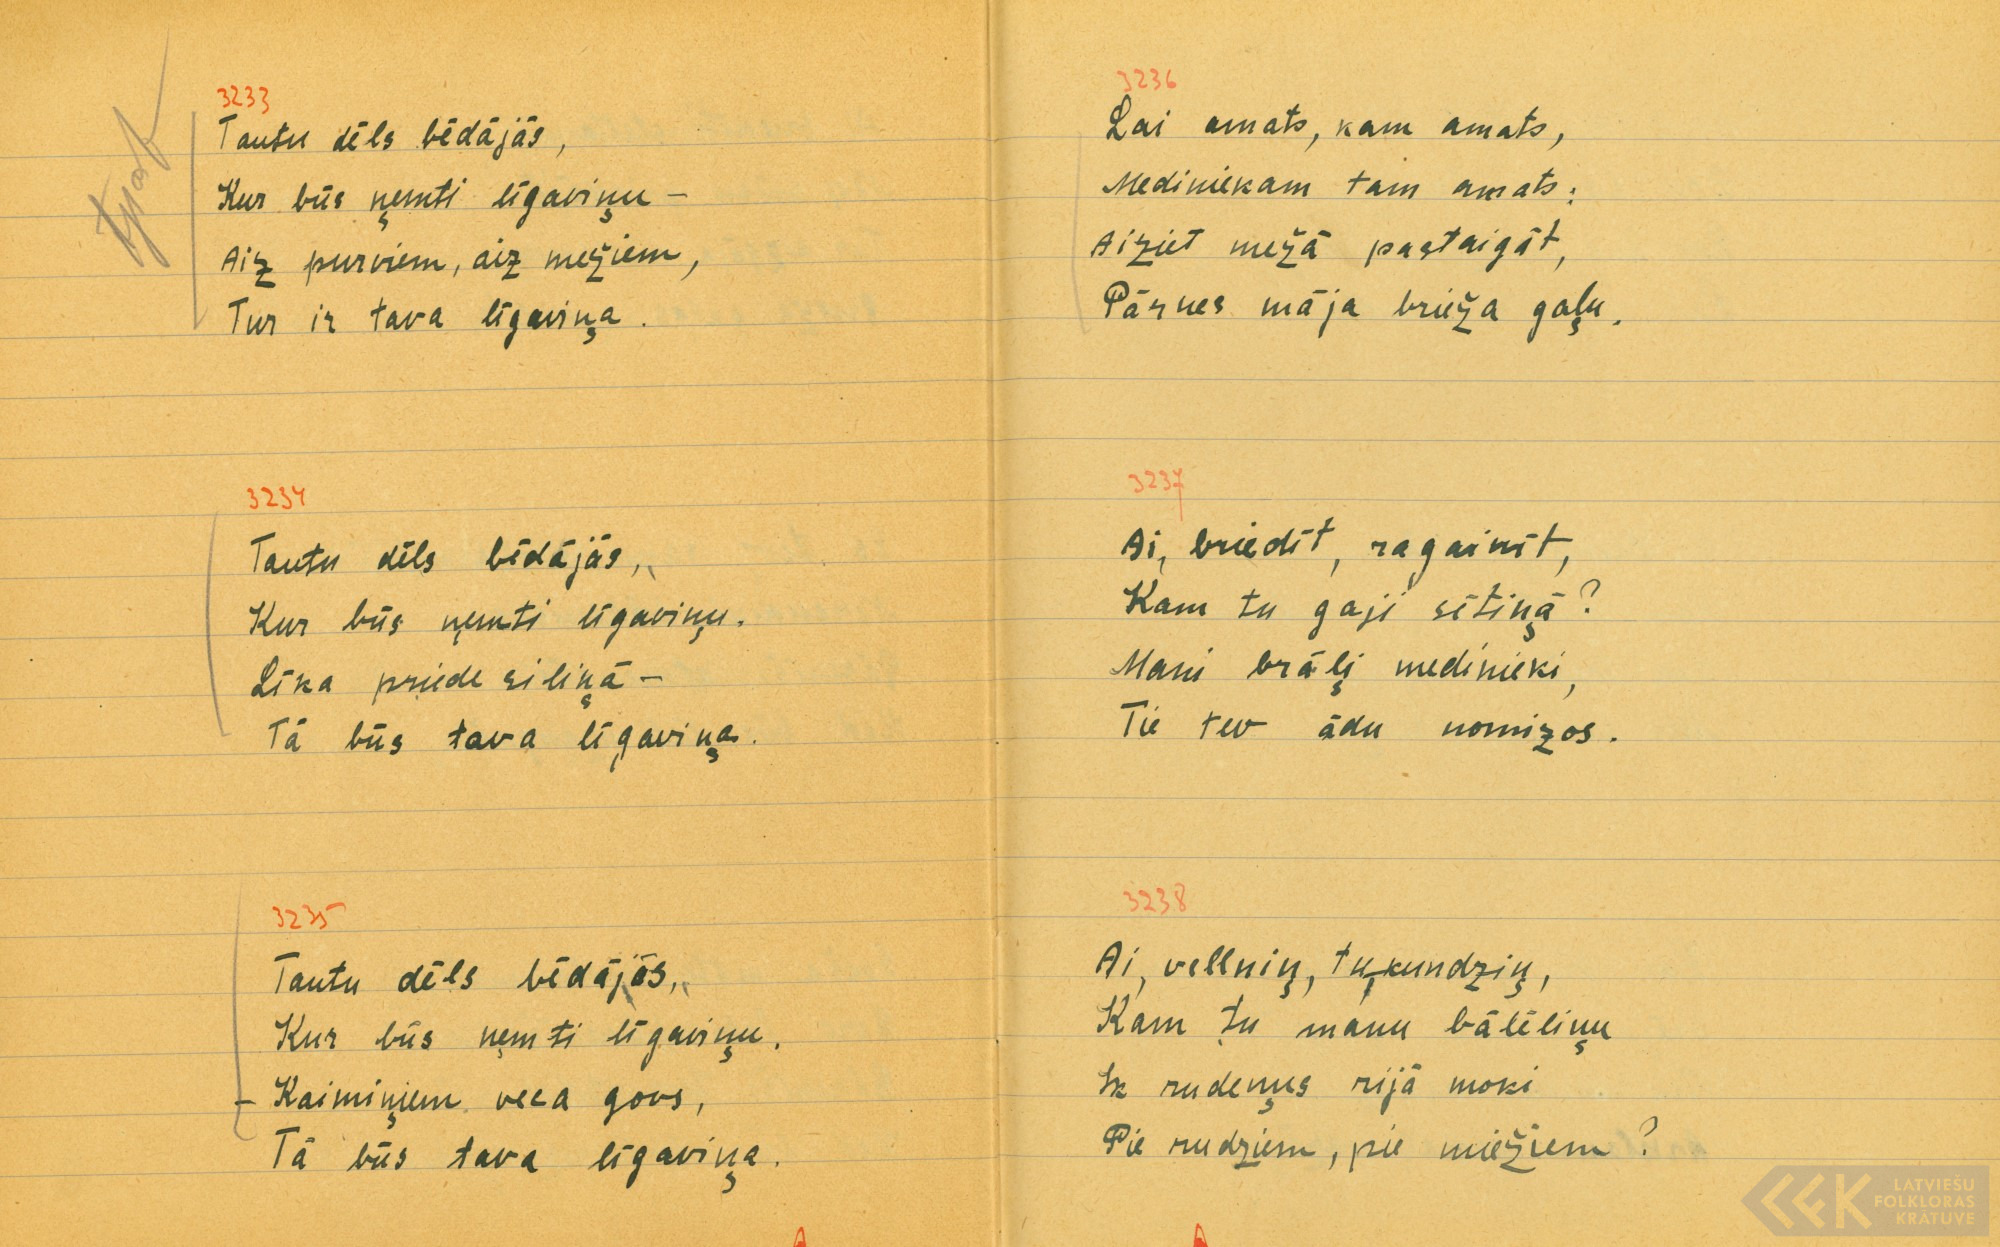 3233
Tautu dēls bēdājās,
Kur būs ņemti līgaviņu –
Aiz purviem, aiz mežiem,
Tur ir tava līgaviņa.
3234
Tautu dēls bēdājās,
Kur būs ņemti līgaviņu.
Līka priede siliņā –
Tā būs tava līgaviņa.
3235
Tautu dēls bēdājās,
Kur būs ņemti līgaviņu.
– Kaimiņiem veca govs,
Tā būs tava līgaviņa.
3236
Lai amats, kam amats,
Mediniekam tam amats:
Aiziet mežā pastaigāt,
Pārnes māja brieža gaļu.
3237
Ai, briedīt, ragainīt,
Kam tu gaji sētiņā?
Mani brāļi medinieki,
Tie tev ādu nomizos.
3238
Ai, vellniņ, tu, kundziņ,
Kam tu manu bālēliņu
Ik rudeņus rijā moki
Pie rudziem, pie miežiem?
LATVIEŠU
FOLKLORAS
KRĀTUVE